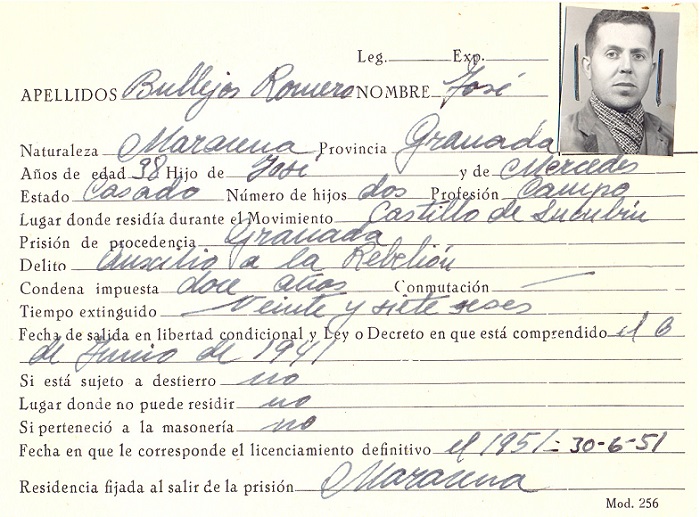 Leg. Exp.
APELLIDOS Bullejos Romero NOMBRE José
Naturaleza Maracena Provincia Granada
Años de edad 38 Hijo de José y de Mercedes
Estado Casado Número de hijos dos Profesión Campo
Lugar donde residía durante el Movimiento Castillo de Locubín
Prisión de procedencia Granada
Delito Auxilio a la Rebelión
Condena impuesta doce años Conmutación
Tiempo extinguido Veinte y siete meses
Fecha de salida en libertad condicional y Ley o Decreto en que está comprendido el 6
de Junio de 1941
Si está sujeto a destierro no
Lugar donde no puede residir no
Si perteneció a la masonería no
Fecha en que le corresponde el licenciamiento definitivo el 1951 = 30-6-51
Residencia fijada al salir de la prisión Maracena
Mod. 256